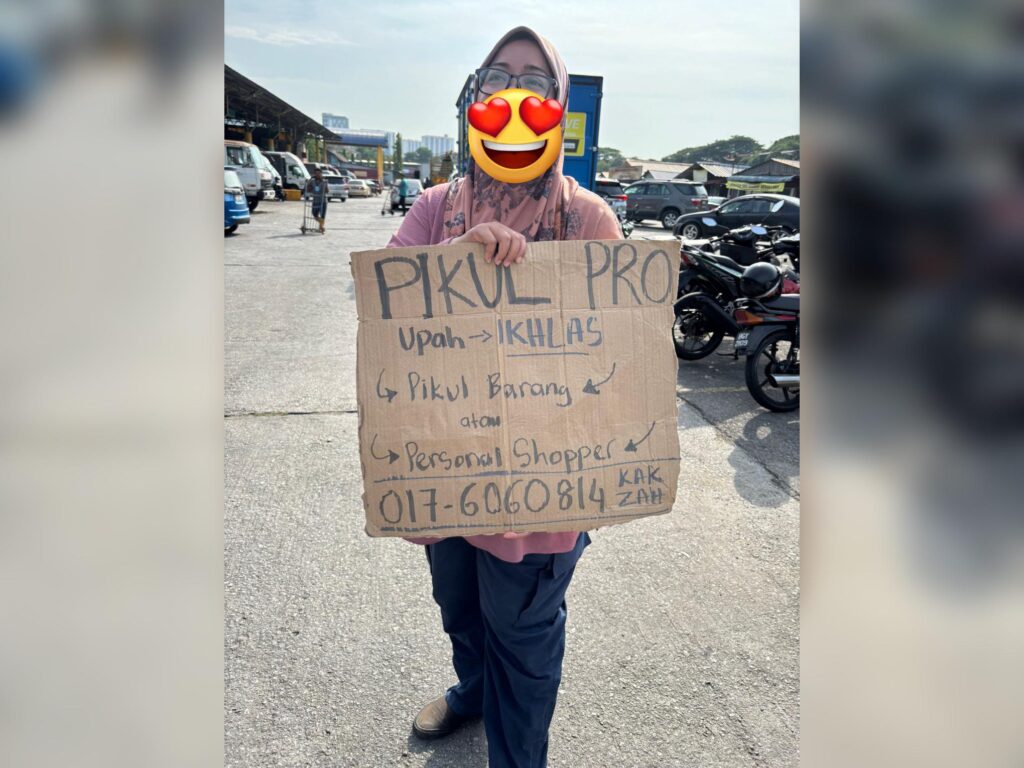 PIKUL PRO
Upah → IKHLAS
Pikul Barang
atau
Personal Shopper
017-6060814 KAK ZAH